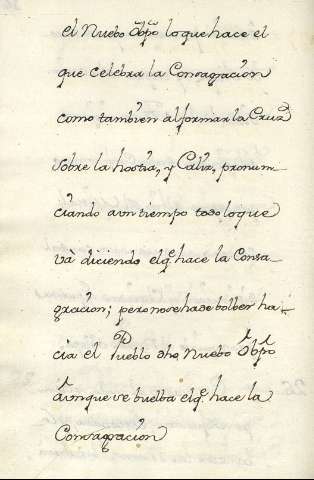 el Nuebo Obpo lo que hace el
que celebra la Consagracion
como tambien al formar la Cruz
sobre la hostia, y Caliz, pronun-
ciando a un tiempo todo lo que
va diciendo el qe hace la Consa-
gracion; pero no se ha de bolber ha-
cia el Pueblo dho Nuebo Obpo
aunque se buelba el qe hace la
Consagracion